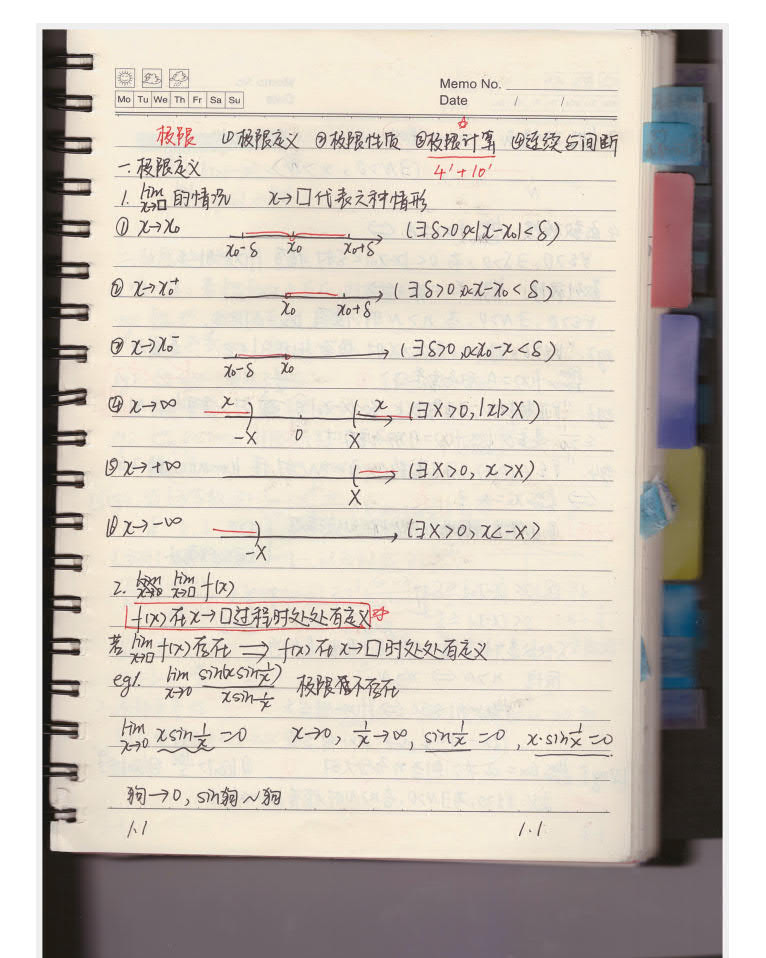 Memo No.
Mo Tu We Th Fr Sa Su
Date / /
极限 ①极限定义 ②极限性质 ③极限计算 ④连续与间断
4'+10'
一.极限定义
1. lim x→□ 的情况 x→□代表六种情形
① x→x₀ x₀-δ x₀ x₀+δ (∃δ>0,0<|x-x₀|<δ)
② x→x₀⁺ x₀ x₀+δ (∃δ>0,0<x-x₀<δ)
③ x→x₀⁻ x₀-δ x₀ (∃δ>0,0<x₀-x<δ)
④ x→∞ x -X 0 X x (∃X>0,|x|>X)
⑤ x→+∞ X (∃X>0, x>X)
⑥ x→-∞ -X (∃X>0, x<-X)
2. lim x→□ f(x)
f(x)在x→□过程时处处有定义
若 lim x→□ f(x)存在 ⟹ f(x)在x→□时处处有定义
eg1. lim x→0 sin(xsin 1/x) / xsin 1/x 极限不存在
lim x→0 xsin 1/x =0 x→0, 1/x→∞, sin 1/x =0, x·sin 1/x =0
狗→0, sin狗~狗
1.1 1.1